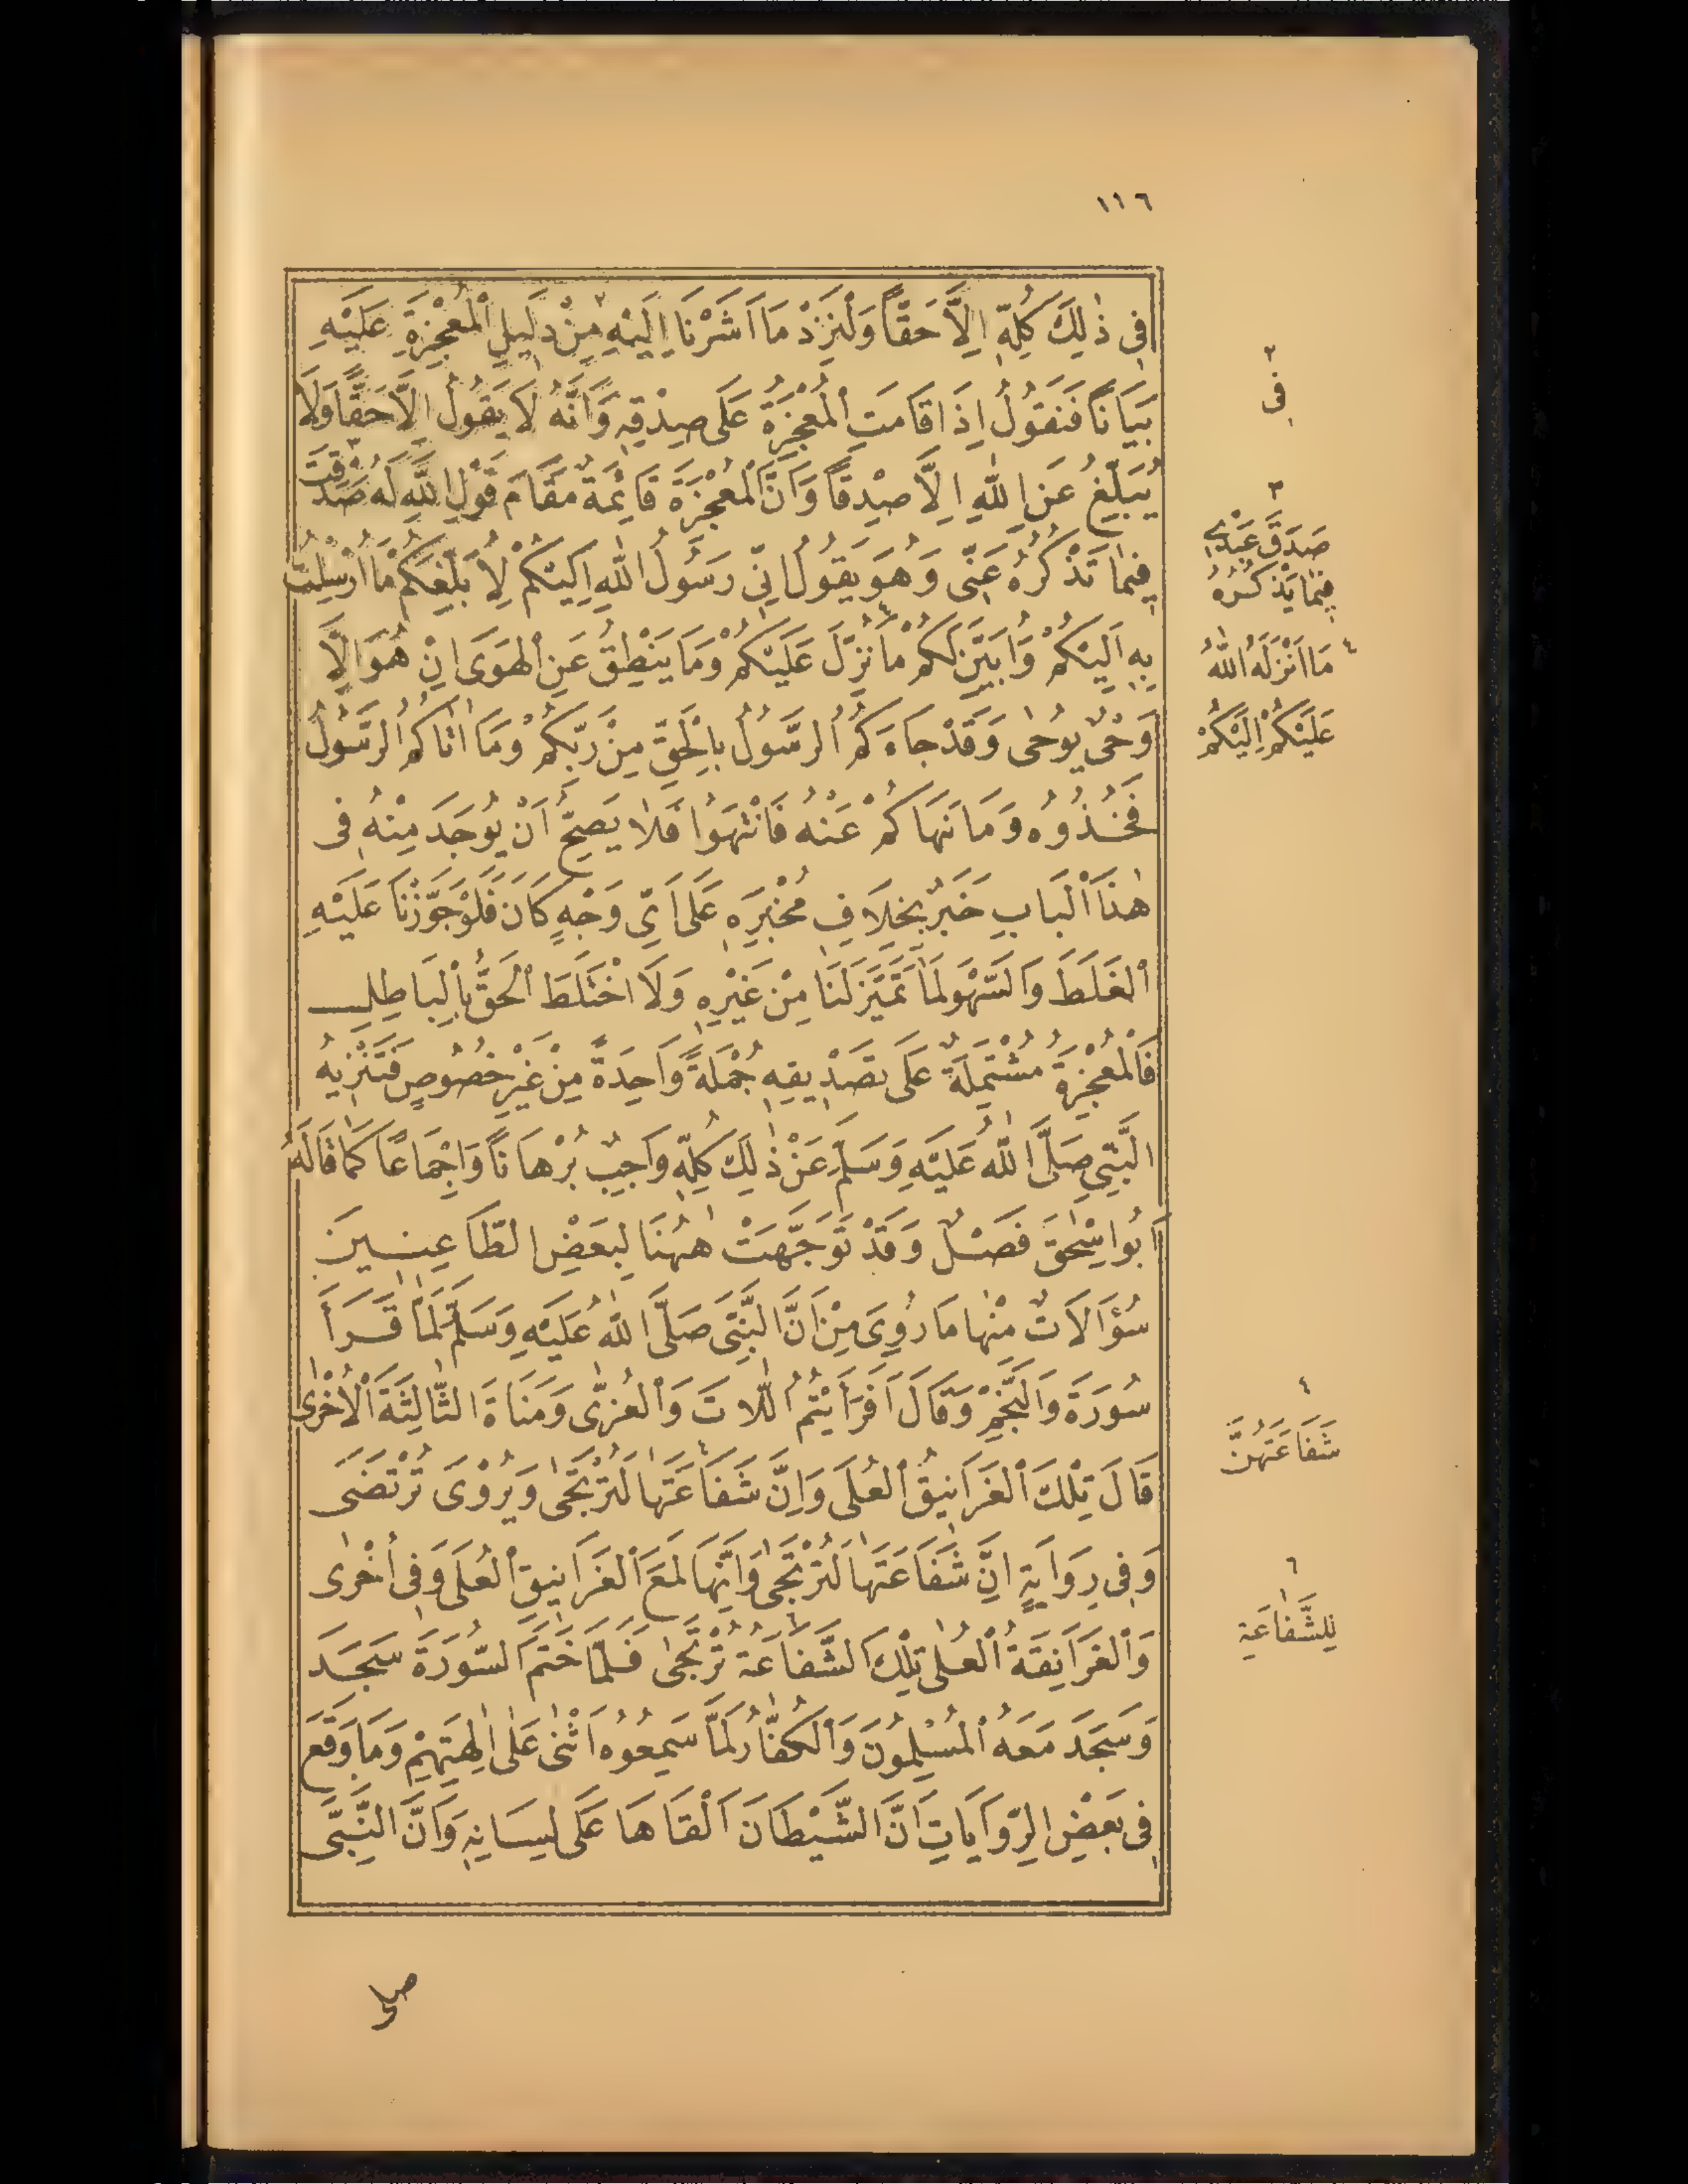 ١١٦
فِى ذٰلِكَ كُلِّهِ اِلَّا حَقًّا وَلْنَزِدْ مَا اَشَرْنَا اِلَيْهِ ٢ مِنْ دَلِيلِ الْمُعْجِزَةِ عَلَيْهِ
بَيَانًا فَنَقُولُ اِذَا قَامَتِ الْمُعْجِزَةُ عَلَى صِدْقِهِ وَاَنَّهُ لَا يَقُولُ اِلَّا حَقًّا وَلَا
يُبَلِّغُ عَنِ اللهِ اِلَّا صِدْقًا وَاَنَّ الْمُعْجِزَةَ قَائِمَةٌ مَقَامَ قَوْلِ اللهِ لَهُ ٣ صَدَقْتَ
فِيمَا تَذْكُرُهُ عَنِّى وَهُوَ يَقُولُ اِنِّى رَسُولُ اللهِ اِلَيْكُمْ لِاُبَلِّغَكُمْ مَا اُرْسِلْتُ
بِهِ اِلَيْكُمْ وَاُبَيِّنَ لَكُمْ ٤ مَا نُزِّلَ عَلَيْكُمْ وَمَا يَنْطِقُ عَنِ الْهَوَى اِنْ هُوَ اِلَّا
وَحْىٌ يُوحٰى وَقَدْ جَاءَكُمُ الرَّسُولُ بِالْحَقِّ مِنْ رَبِّكُمْ وَمَا اٰتَاكُمُ الرَّسُولُ
فَخُذُوهُ وَمَا نَهَاكُمْ عَنْهُ فَانْتَهُوا فَلَا يَصِحُّ اَنْ يُوجَدَ مِنْهُ فِى
هٰذَا الْبَابِ خَبَرٌ بِخِلَافِ مُخْبَرِهِ عَلَى اَىِّ وَجْهٍ كَانَ فَلَوْ جَوَّزْنَا عَلَيْهِ
الْغَلَطَ وَالسَّهْوَ لَمَا تَمَيَّزَ لَنَا مِنْ غَيْرِهِ وَلَا اخْتَلَطَ الْحَقُّ بِالْبَاطِلِ
فَالْمُعْجِزَةُ مُشْتَمِلَةٌ عَلَى تَصْدِيقِهِ جُمْلَةً وَاحِدَةً مِنْ غَيْرِ خُصُوصٍ فَتَنْزِيهُ
النَّبِىِّ صَلَّى اللهُ عَلَيْهِ وَسَلَّمَ عَنْ ذٰلِكَ كُلِّهِ وَاجِبٌ بُرْهَانًا وَاِجْمَاعًا كَمَا قَالَهُ
اَبُو اِسْحٰقَ فَصْلٌ وَقَدْ تَوَجَّهَتْ هٰهُنَا لِبَعْضِ الطَّاعِنِينَ
سُؤَالَاتٌ مِنْهَا مَا رُوِىَ مِنْ اَنَّ النَّبِىَّ صَلَّى اللهُ عَلَيْهِ وَسَلَّمَ لَمَّا قَرَأَ
سُورَةَ وَالنَّجْمِ وَقَالَ اَفَرَاَيْتُمُ اللَّاتَ وَالْعُزّٰى وَمَنَاةَ الثَّالِثَةَ الْاُخْرٰى
قَالَ تِلْكَ الْغَرَانِيقُ الْعُلَى وَاِنَّ ٤ شَفَاعَتَهَا لَتُرْتَجٰى وَيُرْوَى تُرْتَضَى
وَفِى رِوَايَةٍ اِنَّ شَفَاعَتَهَا لَتُرْتَجٰى وَاِنَّهَا لَمَعَ الْغَرَانِيقِ الْعُلَى وَفِى اُخْرٰى
وَالْغَرَانِقَةُ الْعُلٰى تِلْكَ ٦ الشَّفَاعَةُ تُرْتَجٰى فَلَمَّا خَتَمَ السُّورَةَ سَجَدَ
وَسَجَدَ مَعَهُ الْمُسْلِمُونَ وَالْكُفَّارُ لَمَّا سَمِعُوهُ اَثْنٰى عَلٰى اٰلِهَتِهِمْ وَمَا وَقَعَ
فِى بَعْضِ الرِّوَايَاتِ اَنَّ الشَّيْطَانَ اَلْقَاهَا عَلَى لِسَانِهِ وَاَنَّ النَّبِىَّ
صلى
٢
فِى
٣
صَدَقَ عَبْدِى
فِيمَا يَذْكُرُهُ
٤ مَا اَنْزَلَهُ اللهُ
عَلَيْكُمْ اِلَيْكُمْ
٤
شَفَاعَتَهُنَّ
٦
لِلشَّفَاعَةِ